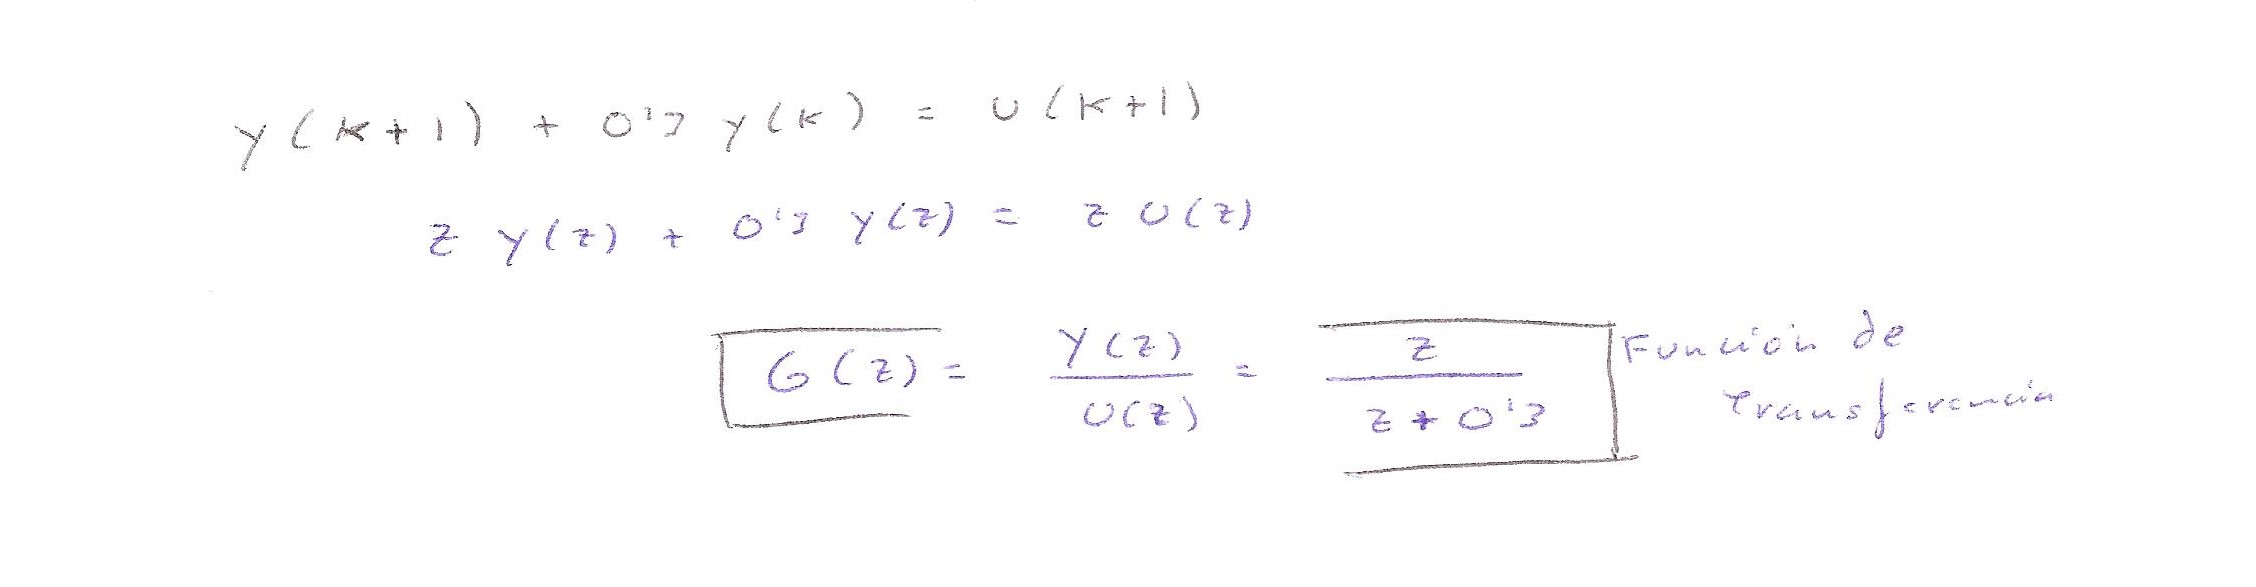 y(k+1) + 0'3 y(k) = U(k+1)
z y(z) + 0'3 y(z) = z U(z)
G(z) = Y(z)/U(z) = z/(z+0'3) Función de
transferencia